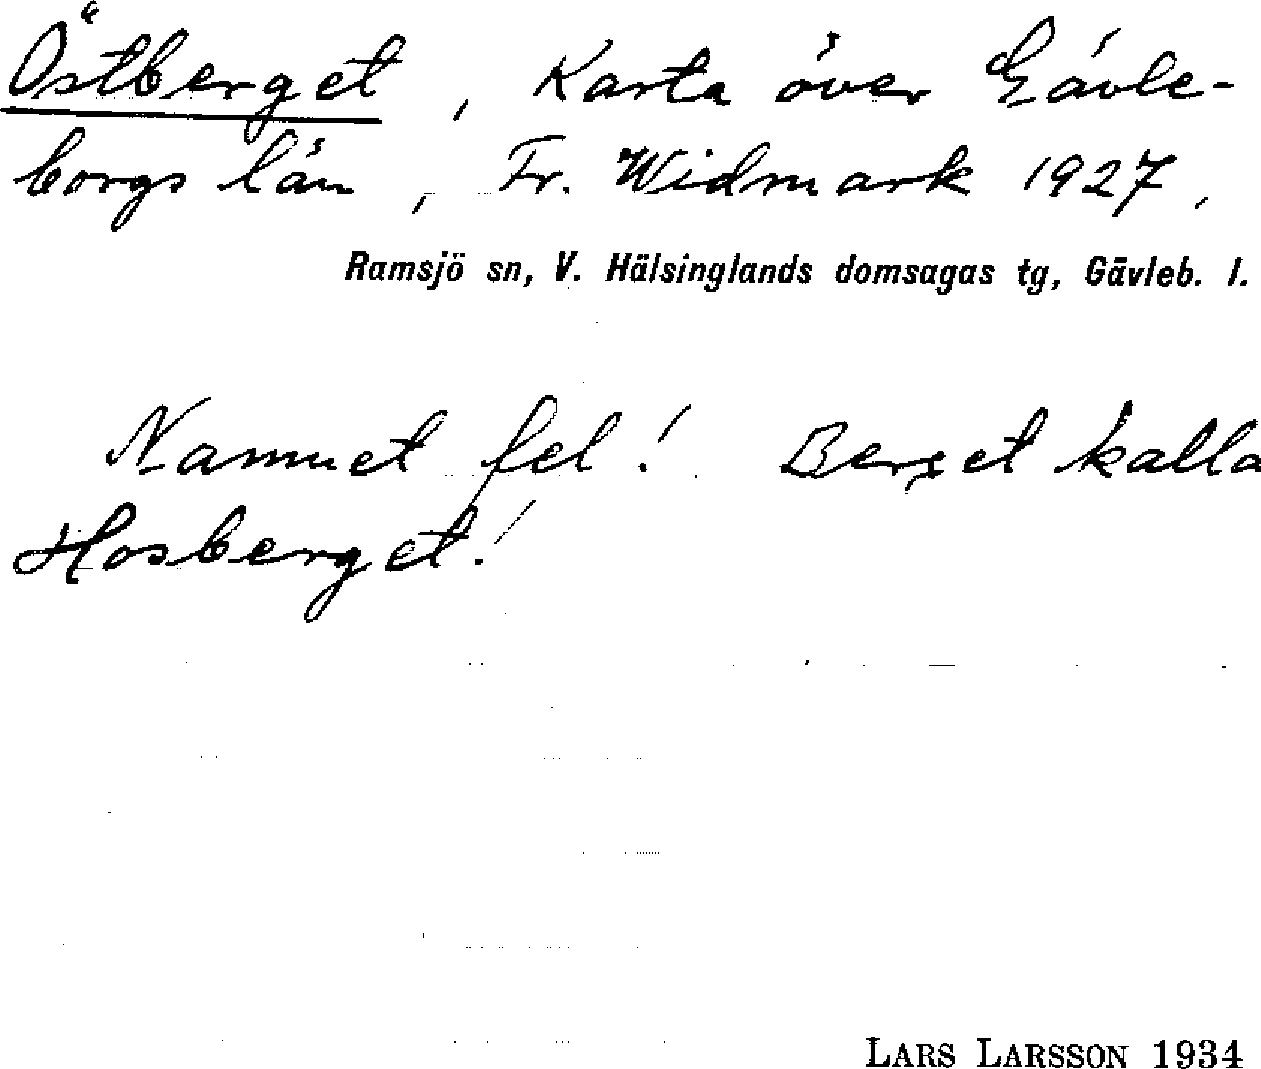 Östberget, Karta över Gävle-
borgs län, Fr. Widmark 1927,
Ramsjö sn, V. Hälsinglands domsagas tg, Gävleb. l.
Namnet fel! Berget kalla
Hosberget!
LARS LARSSON 1934